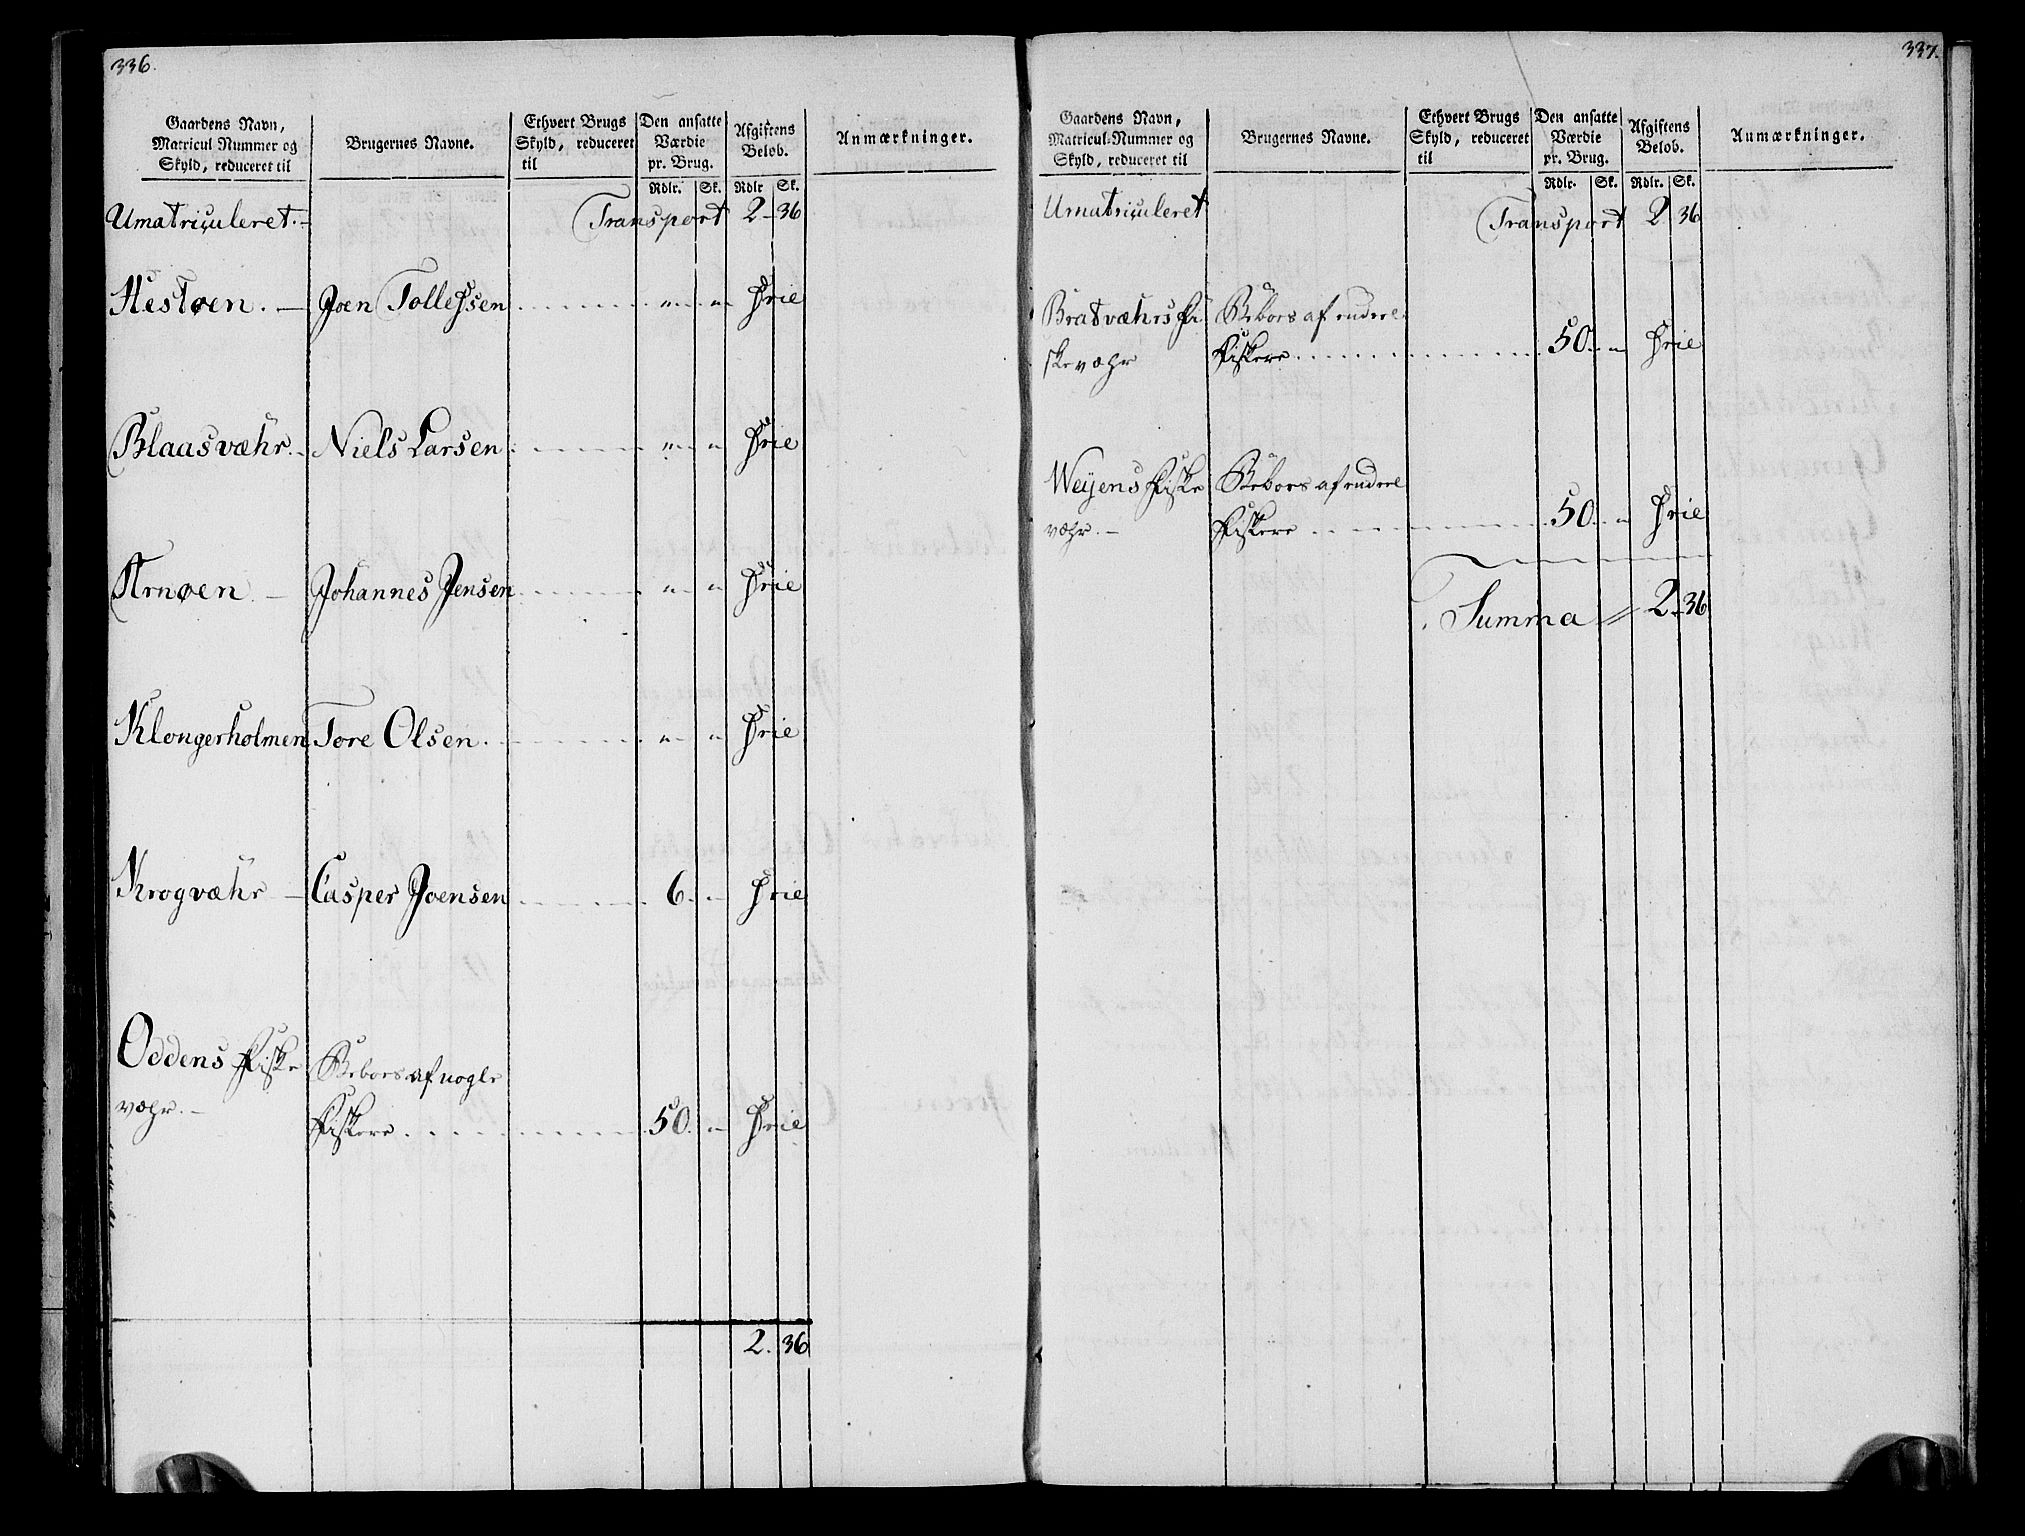 336.
Gaardens Navn, Matricul Nummer og Skyld, reduceret til
Brugernes Navne.
Ethvert Brugs Skyld, reduceret til
Den ansatte Værdie pr. Brug.
Afgiftens Beløb.
Anmærkninger.
Rdlr. Sk. Rdlr Sk.
Umatriculeret. Transport 2 36
Hestøen. Joen Tollefsen " " frie
Blaasvæhr. Niels Larsen " " frie
Arnøen Johannes Jensen " " frie
Klongerholmen Tore Olsen. " " frie
Krogvæhr Casper Joensen 6. " frie
Oddens Fiske Beboes af nogle
væhr. Fiskere 50. " frie
2. 36
337.
Gaardens Navn, Matricul-Nummer og Skyld, reduceret til
Brugernes Navne.
Ethvert Brugs Skyld, reduceret til
Den ansatte Værdie pr. Brug.
Afgiftens Beløb.
Anmærkninger.
Rdlr. Sk. Rdlr. Sk.
Umatriculeret Transport 2 36
Bratvæhrs Fi Beboes af
skevæhr Fiskere 50. " frie
Weyens Fiske Beboes af
væhr. Fiskere 50. " frie
Summa 2. 36